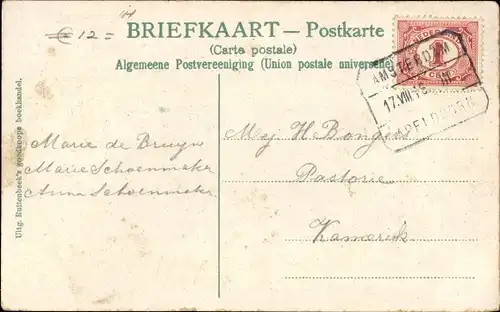 € 12 = 
BRIEFKAART — Postkarte
(Carte postale)
Algemeene Postvereeniging (Union postale universelle)
NEDERLAND
1
CENT
AMSTERDAM
17.VIII
APELDOORN
Marie de Bruyn
Marie Schoenmaker
Anna Schoenmaker
Mej H. Bongers
Pastorie
Kamerik
Uitg. Ruitenbeek's goedkoope boekhandel.